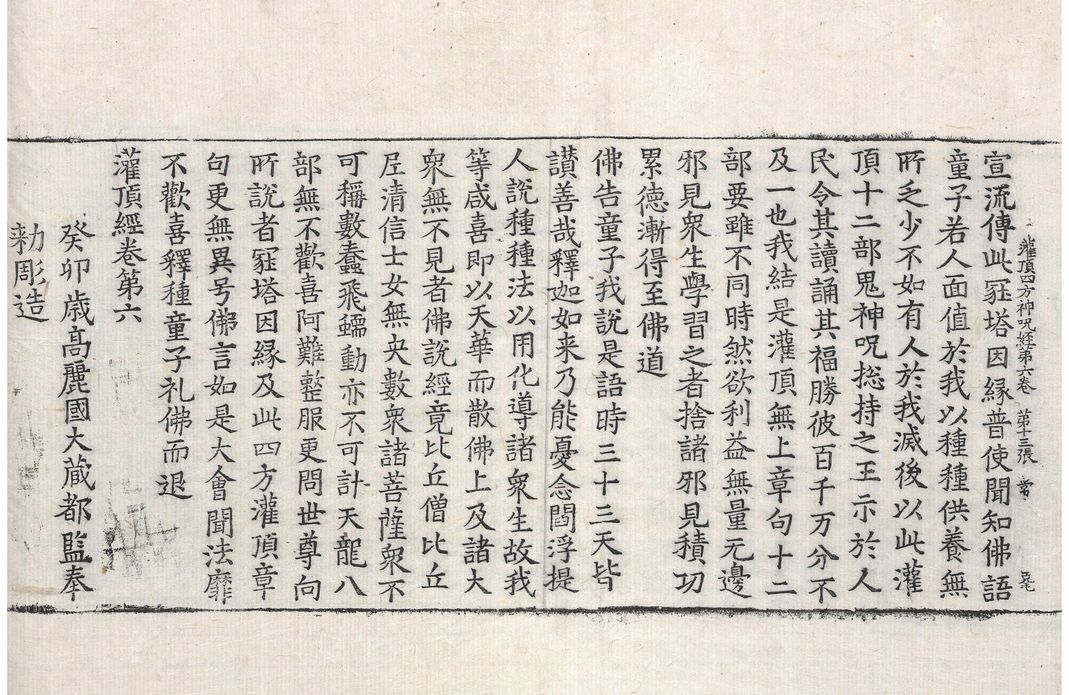 灌頂四方神呪経第六卷 第十三張 常
宣流傳此冡塔因緣普使聞知佛語
童子若人面值於我以種種供養無
所乏少不如有人於我滅後以此灌
頂十二部鬼神呪捴持之王示於人
民令其讀誦其福勝彼百千万分不
及一也我結是灌頂無上章句十二
部要雖不同時然欲利益無量无邊
邪見衆生學習之者捨諸邪見積功
累德漸得至佛道
佛告童子我說是語時三十三天皆
讃善哉釋迦如来乃能憂念閻浮提
人說種種法以用化導諸衆生故我
等咸喜即以天華而散佛上及諸大
衆無不見者佛說經竟比丘僧比丘
尼清信士女無央數衆諸菩薩衆不
可稱數蠢飛蠕動亦不可計天龍八
部無不歡喜阿難整服更問世尊向
所說者冡塔因緣及此四方灌頂章
句更無異号佛言如是大會聞法靡
不歡喜釋種童子礼佛而退
灌頂經卷第六
癸卯歲高麗國大藏都監奉
勑彫造